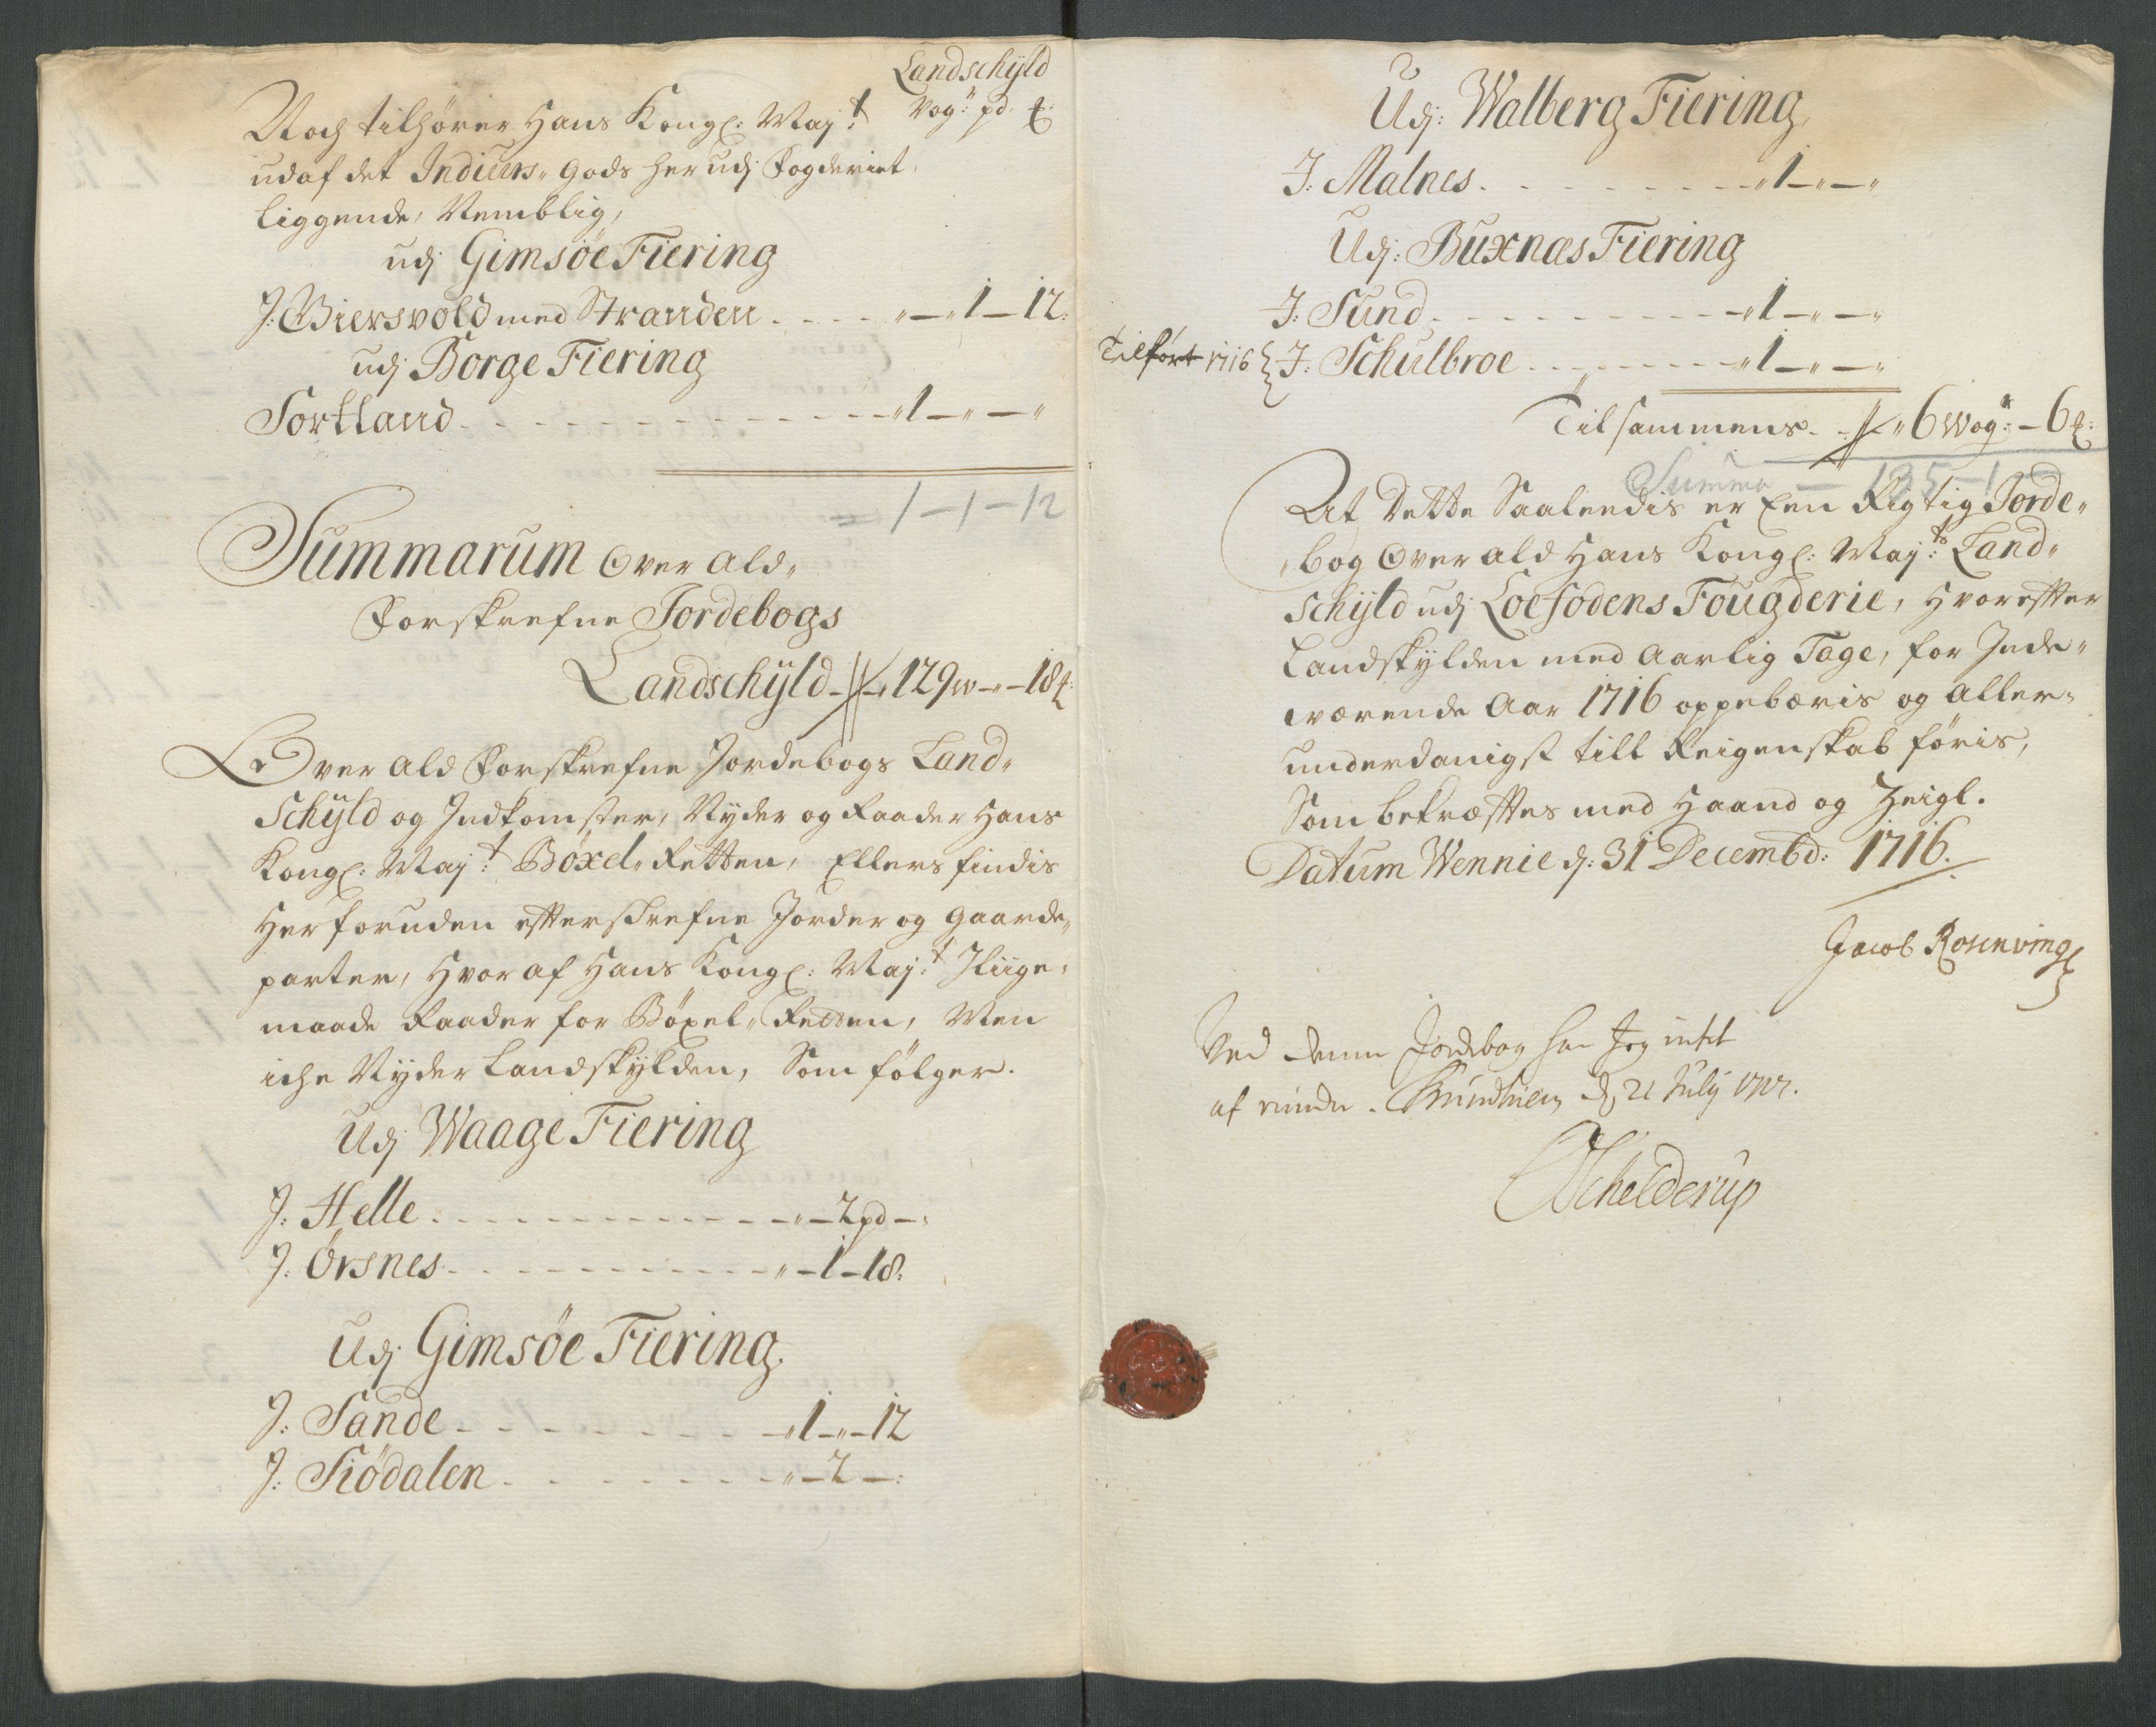 Landschÿld
Vog: pd. ℔:
Noch tilhører Hans Kongl: Maj:t
udaf det Indiürs- Gods her udj Fogderiet
liggende, Nemblig,
udj Gimsöe Fiering
J: Biersvold med Stranden - - - - „ - 1 - 12:
udj Borge Fiering
Sortland - - - - - - - - - - „ 1 - „ - „
= 1 - 1 - 12
Summarum over ald-
Forskrefne Jordebogs
Landschÿld - „ 129 w - „ - 18 ℔:
Over ald Forskrefne Jordebogs Land-
Schÿld og Indkomster, Nyder og Raader Hans
Kongl: Maj:t Böxel-Retten, Ellers findis
Her foruden efterskrefne Jorder og Gaarde-
parter, Hvor af Hans Kongl: Maj:t Iliige-
maade Raader for Böxel-Retten, Men
iche Nyder Landskylden, Som fölger.
Udj Waage Fiering
J: Helle - - - - - - - - „ - 2 pd - „
J: Örsnes - - - - - - - - „ - 1 - 18:
Udj Gimsöe Fiering
J: Sande - - - - - - - „ 1 - „ - 12
J: Siödalen - - - - - - - „ - 2 - :
Udj: Walberg Fiering
J: Malnes - - - - - - - „ 1 - „ - „
Udj: Buxnæs Fiering
J: Sund - - - - - - - - „ 1 - „ - „
Tilfört 1716 J: Schulbroe - - - - - - „ 1 - „ - „
Tilsammens - - „ 6 Wog: - 6 ℔:
Summa - 135 - 1 -
At Dette Saaledis er Een Rigtig Jorde-
-bog Over ald Hans Kongl: Maj:ts Land-
Schÿld udj Loefodens Fougderie, Hvorefter
Landskylden med Aarlig Tage, for Inde-
werende Aar 1716 oppebæris og Aller-
underdanigst till Reigenskab föris,
Som bekræftes med Haand og Zeigl.
Datum Wennie d: 31 Decembd: 1716.
Jacob Rosenving
Ved denne Jordebog har Jeg intet
at minde. Trundhiem d. 21 July 1717.
Schelderup